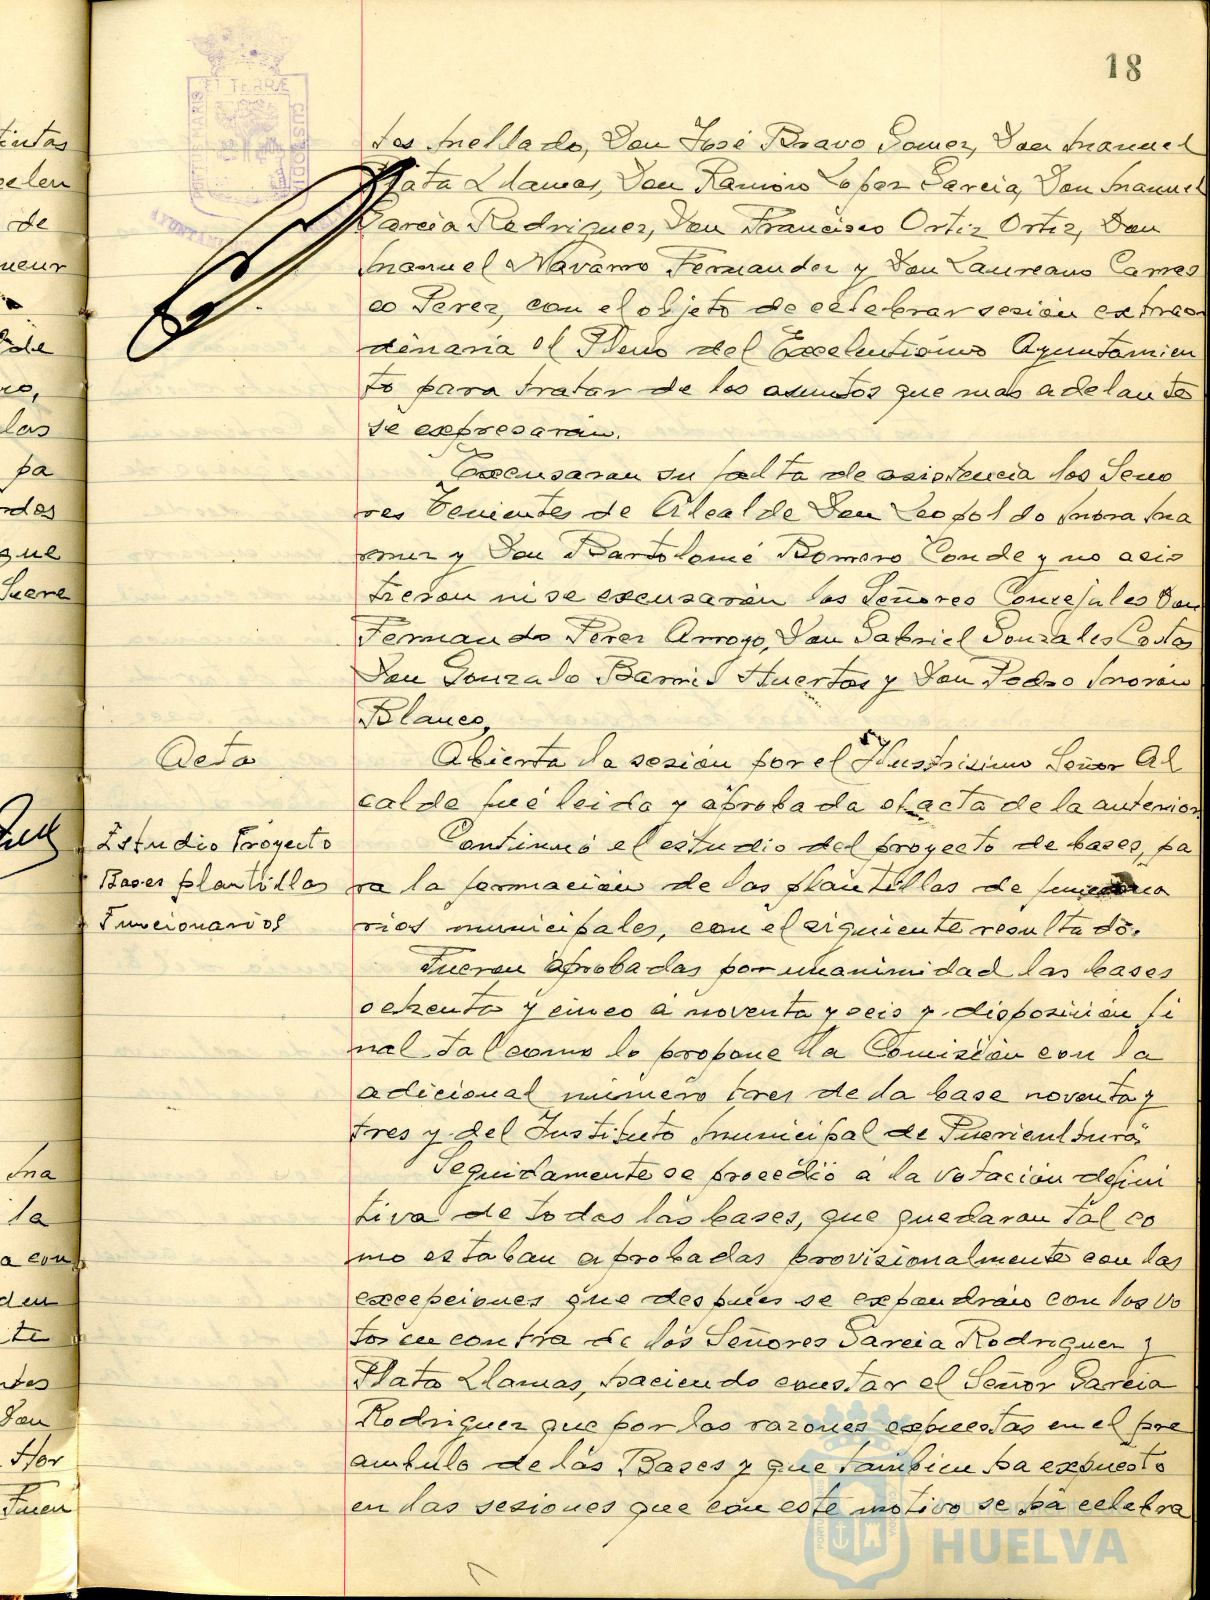 18
tes Mellado, Don José Bravo Gomez, Don Manuel
Plata Llamas, Don Ramiro Lopez Garcia, Don Manuel
Garcia Rodriguez, Don Francisco Ortiz Ortiz, Don
Manuel Navarro Fernandez y Don Laureano Carras
co Perez, con el objeto de celebrar sesión extraor
dinaria el Pleno del Excelentisimo Ayuntamien
to para tratar de los asuntos que mas adelante
se expresarán.
Excusaron su falta de asistencia los Seño
res Tenientes de Alcalde Don Leopoldo Mora Ma
y Don Bartolomé Romero Conde y no asis
tieron ni se excusarón los Señores Concejales Don
Fernando Perez Arroyo, Don Gabriel Gonzales Costas
Don Gonzalo Barril Huertas y Don Pedro Morón
Blanco,
Acta
Abierta la sesión por el Ilustrisimo Señor Al
calde fué leida y aprobada el acta de la anterior
Estudio Proyecto
Bases plantillas
Funcionarios
Continuó el estudio del proyecto de bases, pa
ra la formación de las plantillas de funciona
rios municipales, con el siguiente resultado.
Fueron aprobadas por unanimidad las bases
ochenta y cinco á noventa y seis y disposición fi
nal tal como lo propone la Comisión con la
adicional número tres de la base noventa y
tres y del Instituto Municipal de Puericultura
Seguidamente se procedió a la votación defini
tiva de todas las bases, que quedaron tal co
mo estaban aprobadas provisionalmente con las
excepciones que despues se expondrán con los vo
tos en contra de los Señores Garcia Rodriguez y
Plata Llamas, haciendo constar el Señor Garcia
Rodriguez que por las razones expuestas en el pre
ambulo de las Bases y que tambien ha expuesto
en las sesiones que con este motivo se há celebra
Ayuntamiento de
HUELVA